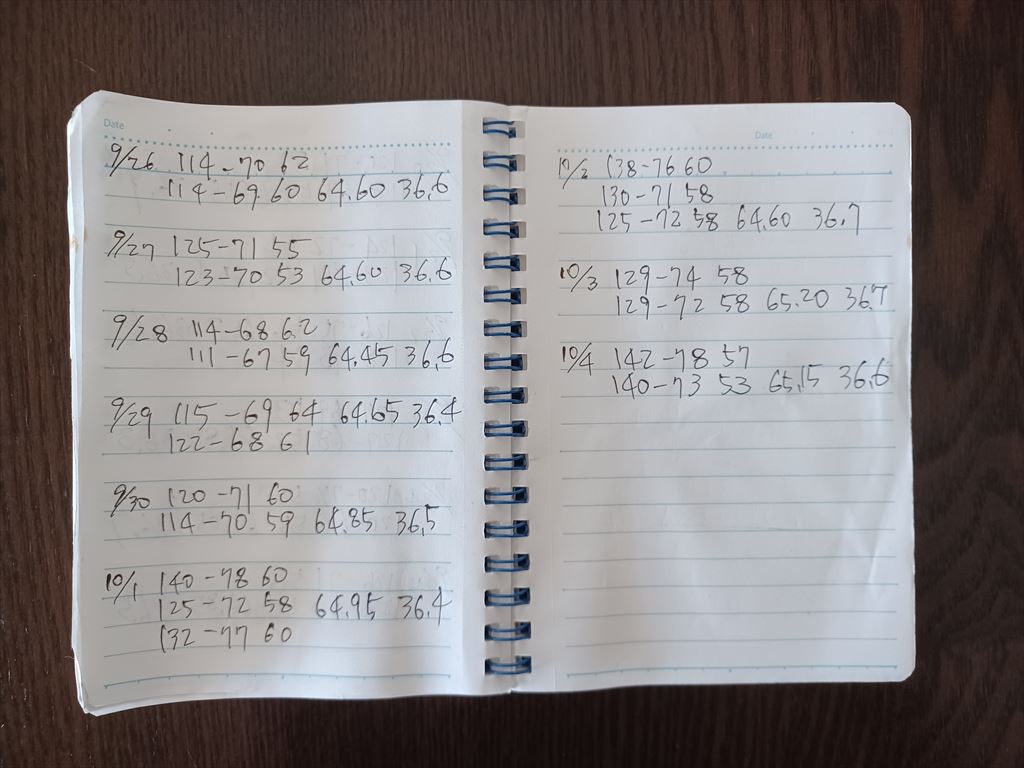 Date
9/26 114-70 62
114-69 60 64.60 36.6
9/27 125-71 55
123-70 53 64.60 36.6
9/28 114-68 62
111-67 59 64.45 36.6
9/29 115-69 64 64.65 36.4
122-68 61
9/30 120-71 60
114-70 59 64.85 36.5
10/1 140-78 60
125-72 58 64.95 36.4
132-77 60
Date
10/2 138-76 60
130-71 58
125-72 58 64.60 36.7
10/3 129-74 58
129-72 58 65.20 36.7
10/4 142-78 57
140-73 53 65.15 36.6